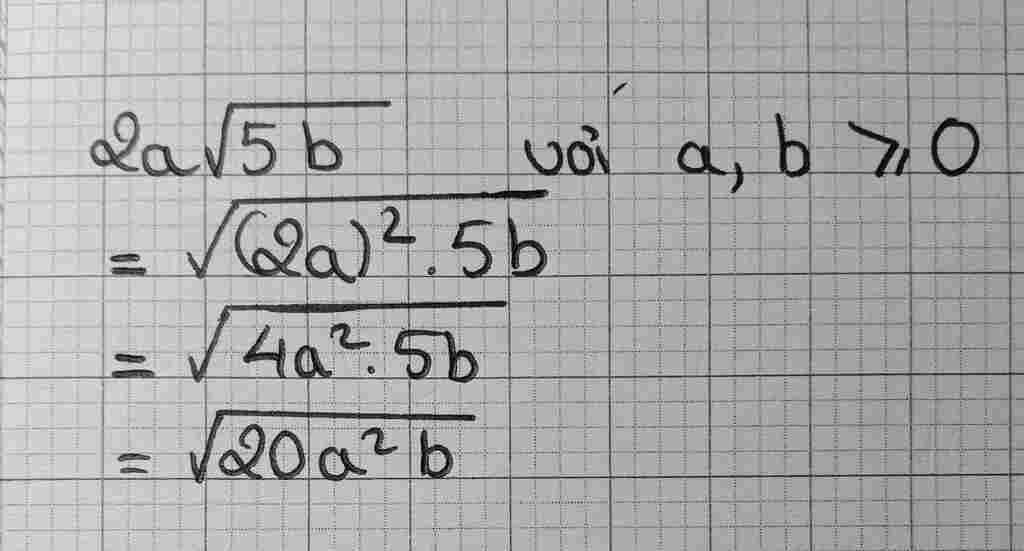 2a√(5b) với a, b ⩾ 0
= √((2a)² . 5b)
= √(4a² . 5b)
= √(20a²b)